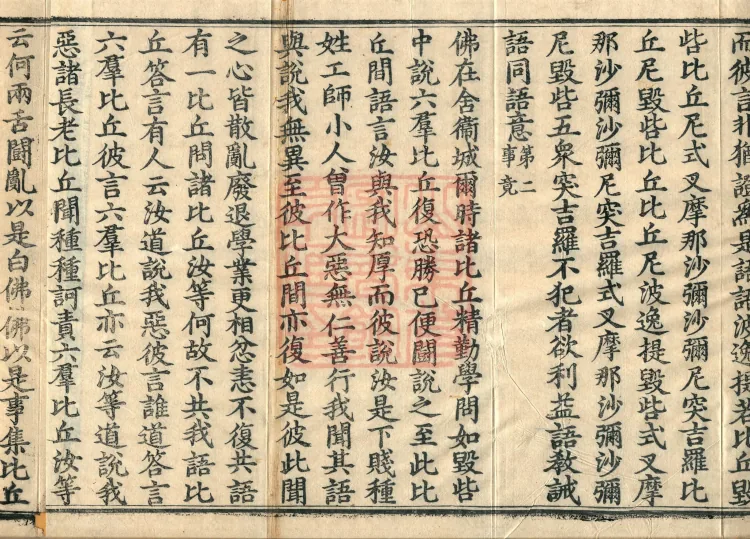 而彼言非猶是語語波逸提若比丘毀
呰比丘尼式叉摩那沙彌沙彌尼突吉羅比
丘尼毀呰比丘比丘尼波逸提毀呰式叉摩
那沙彌沙彌尼突吉羅式叉摩那沙彌沙彌
尼毀呰五衆突吉羅不犯者欲利益語教誡
語同語意第二事竟
佛在舍衞城爾時諸比丘精勤學問如毀呰
中說六羣比丘復恐勝己便鬪說之至此比
丘間語言汝與我知厚而彼說汝是下賤種
姓工師小人曾作大惡無仁善行我聞其語
與說我無異至彼比丘間亦復如是彼此聞
之心皆散亂廢退學業更相忿恚不復共語
有一比丘問諸比丘汝等何故不共我語比
丘答言有人云汝道說我惡彼言誰道答言
六羣比丘彼言六羣比丘亦云汝等道說我
惡諸長老比丘聞種種訶責六羣比丘汝等
云何兩舌鬪亂以是白佛佛以是事集比丘